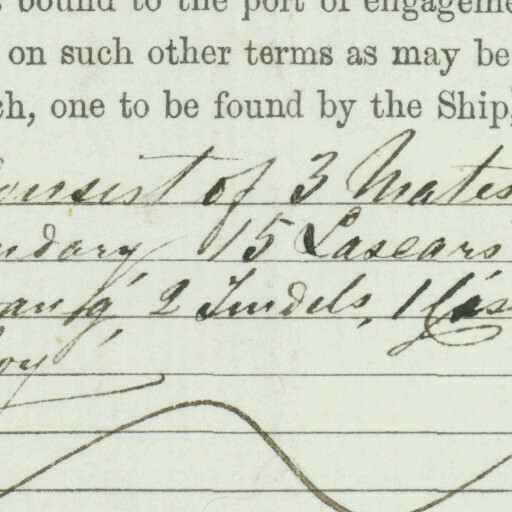 bound to the port of engageme
on such other terms as may be
ch, one to be found by the Ship,
Consist of 3 Mates
ndary 15 Lascars
ang 2 Tindels, 1 Cas
oy